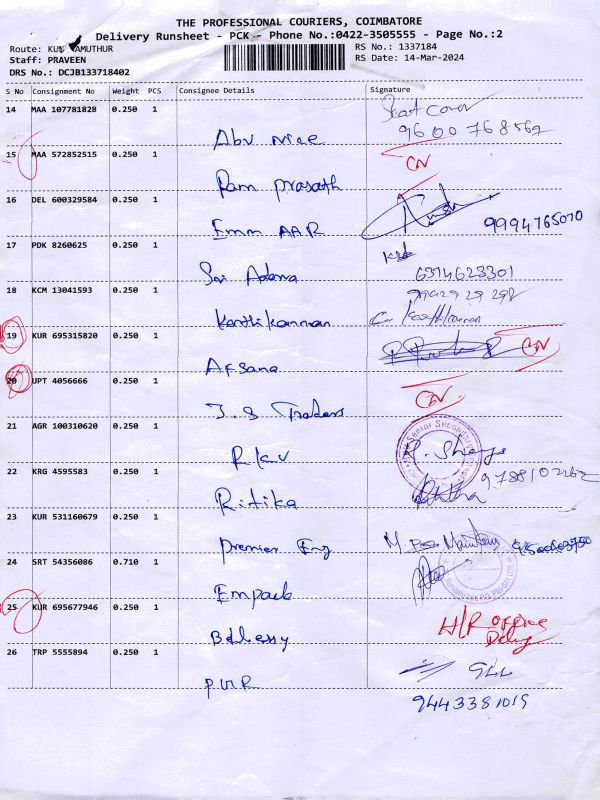 THE PROFESSIONAL COURIERS, COIMBATORE
Delivery Runsheet - PCK - Phone No.:0422-3505555 - Page No.:2
Route:
RS No.: 1337184
Staff: PRAVEEN
RS Date: 14-Mar-2024
DRS No.: DCJB133718402
S No Consignment No Weight PCS Consignee Details Signature
14 MAA 107781828 0.250 1
Seat Cover
9600768562
Abu nice
15 MAA 572852515 0.250 1
CN
Ram prasath
16 DEL 600329584 0.250 1
9994765070
Emm AAR
17 PDK 8260625 0.250 1
6374623301
Sri
18 KCM 13041593 0.250 1
Karthikannan
19 KUR 695315820 0.250 1
CN
Afsana
20 UPT 4056666 0.250 1
CN
J.S Traders
21 AGR 100310620 0.250 1
Senior Secondary
RKV
22 KRG 4595583 0.250 1
9788102262
Ritika
23 KUR 531160679 0.250 1
premier Eng
24 SRT 54356086 0.710 1
Empack
25 KUR 695677946 0.250 1
H/R office
Delivy
26 TRP 5555894 0.250 1
944
PVR
9443381019